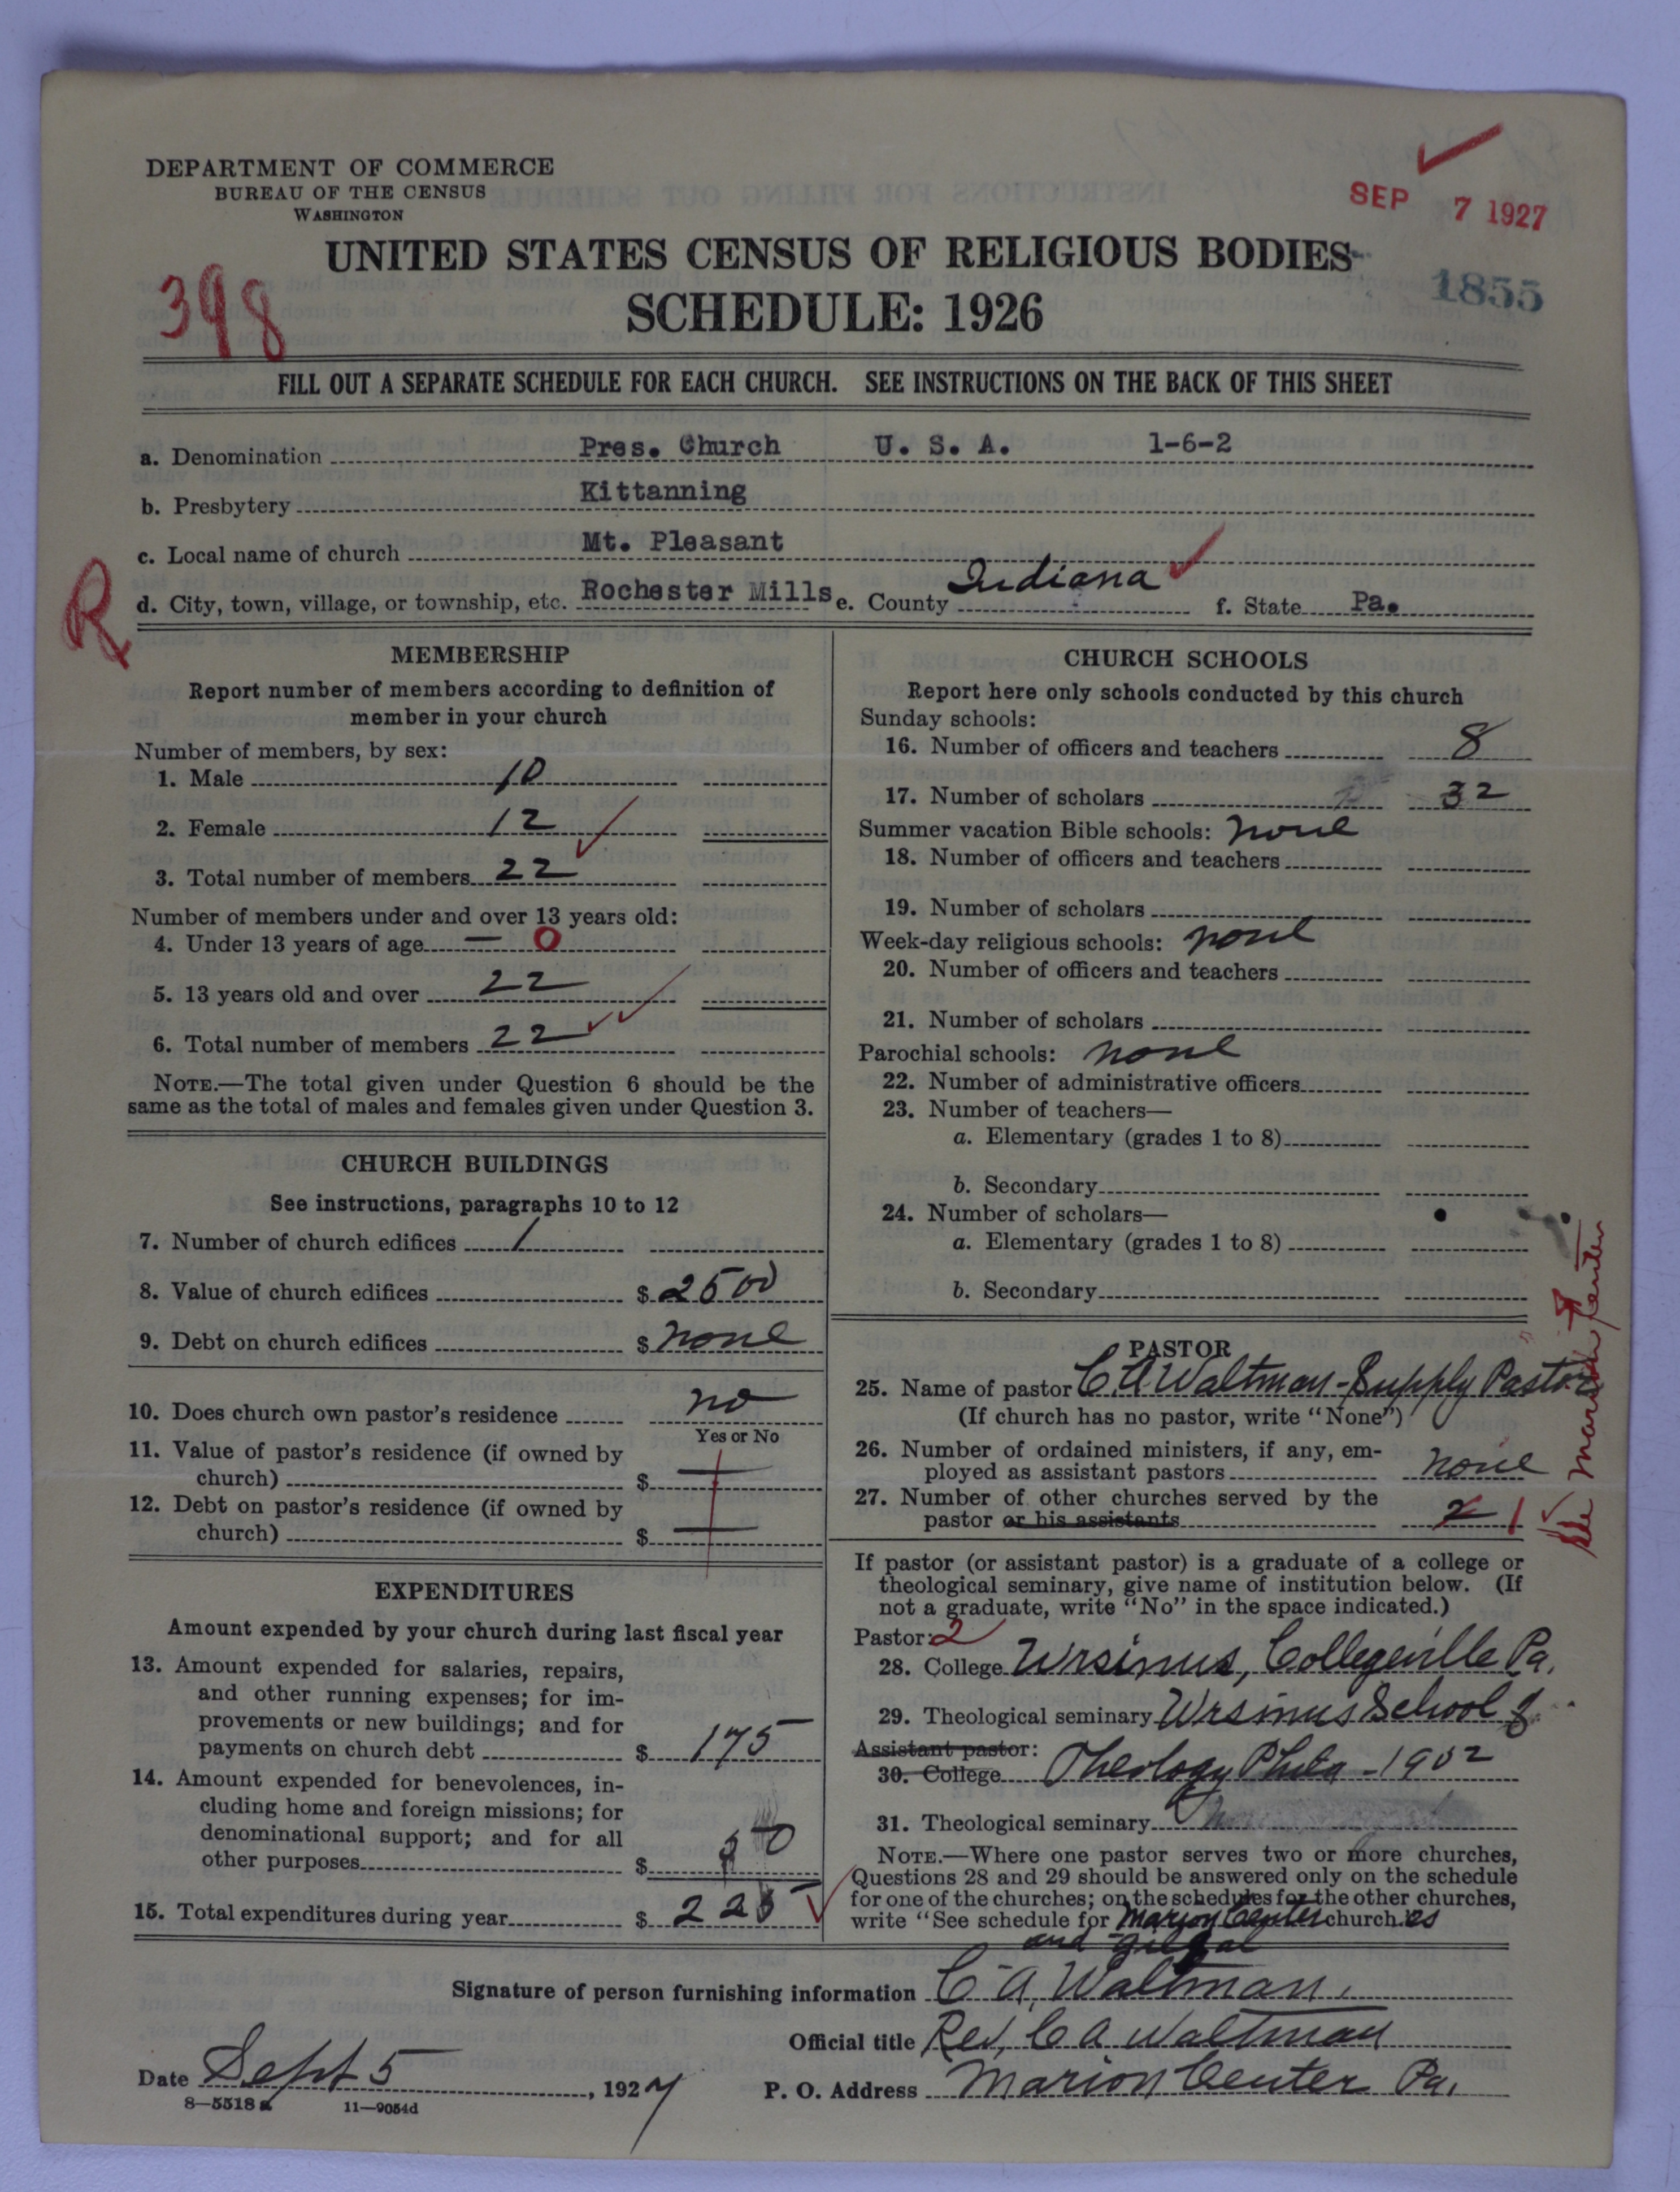 DEPARTMENT OF COMMERCE
BUREAU OF THE CENSUS
WASHINGTON
SEP 7 1927
UNITED STATES CENSUS OF RELIGIOUS BODIES
398
1855
SCHEDULE: 1926
FILL OUT A SEPARATE SCHEDULE FOR EACH CHURCH. SEE INSTRUCTIONS ON THE BACK OF THIS SHEET
a. Denomination Pres. Church U. S. A. 1-6-2
b. Presbytery Kittanning
c. Local name of church Mt. Pleasant
R
d. City, town, village, or township, etc. Rochester Mills e. County Indiana f. State Pa.
MEMBERSHIP
Report number of members according to definition of
member in your church
Number of members, by sex:
1. Male 10
2. Female 12
3. Total number of members 22
Number of members under and over 13 years old:
4. Under 13 years of age — 0
5. 13 years old and over 22
6. Total number of members 22
NOTE.—The total given under Question 6 should be the
same as the total of males and females given under Question 3.
CHURCH BUILDINGS
See instructions, paragraphs 10 to 12
7. Number of church edifices 1
8. Value of church edifices $ 2500
9. Debt on church edifices $ none
10. Does church own pastor's residence no
Yes or No
11. Value of pastor's residence (if owned by
church) $ —
12. Debt on pastor's residence (if owned by
church) $ —
EXPENDITURES
Amount expended by your church during last fiscal year
13. Amount expended for salaries, repairs,
and other running expenses; for im-
provements or new buildings; and for
payments on church debt $ 175
14. Amount expended for benevolences, in-
cluding home and foreign missions; for
denominational support; and for all
other purposes $ 50
15. Total expenditures during year $ 225
CHURCH SCHOOLS
Report here only schools conducted by this church
Sunday schools:
16. Number of officers and teachers 8
17. Number of scholars 32
Summer vacation Bible schools: none
18. Number of officers and teachers
19. Number of scholars
Week-day religious schools: none
20. Number of officers and teachers
21. Number of scholars
Parochial schools: none
22. Number of administrative officers
23. Number of teachers—
a. Elementary (grades 1 to 8)
b. Secondary
24. Number of scholars—
a. Elementary (grades 1 to 8)
b. Secondary
PASTOR
25. Name of pastor C. A. Waltman - Supply Pastor
(If church has no pastor, write "None")
26. Number of ordained ministers, if any, em-
ployed as assistant pastors none
27. Number of other churches served by the
pastor or his assistants 2 1
Marion Center
If pastor (or assistant pastor) is a graduate of a college or
theological seminary, give name of institution below. (If
not a graduate, write "No" in the space indicated.)
Pastor: 2
28. College Ursinus, Collegeville Pa.
29. Theological seminary Ursinus School of
Assistant pastor:
30. College Theology Phila - 1902
31. Theological seminary
NOTE.—Where one pastor serves two or more churches,
Questions 28 and 29 should be answered only on the schedule
for one of the churches; on the schedules for the other churches,
write "See schedule for Marion Center church." es
and Gilgal
Signature of person furnishing information C. A. Waltman.
Official title Rev. C A Waltman
Date Sept 5, 1927 P. O. Address Marion Center Pa.
8—5518 a 11—9054d